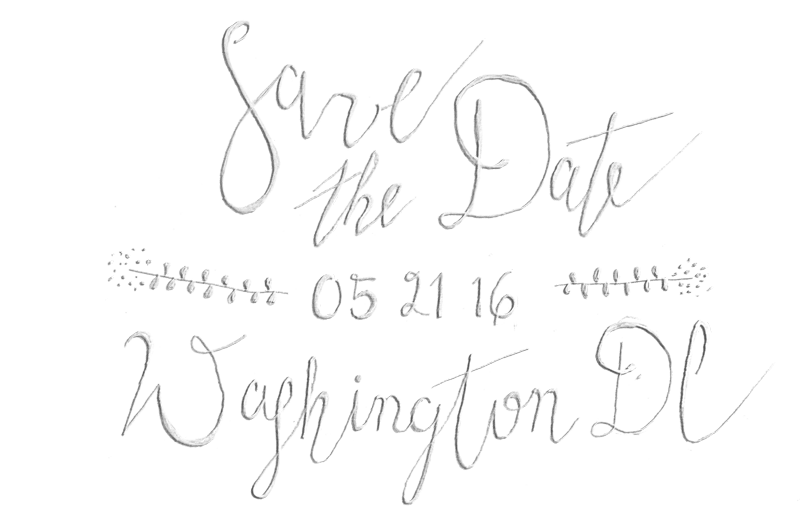 Save
the Date
05 21 16
Washington DC